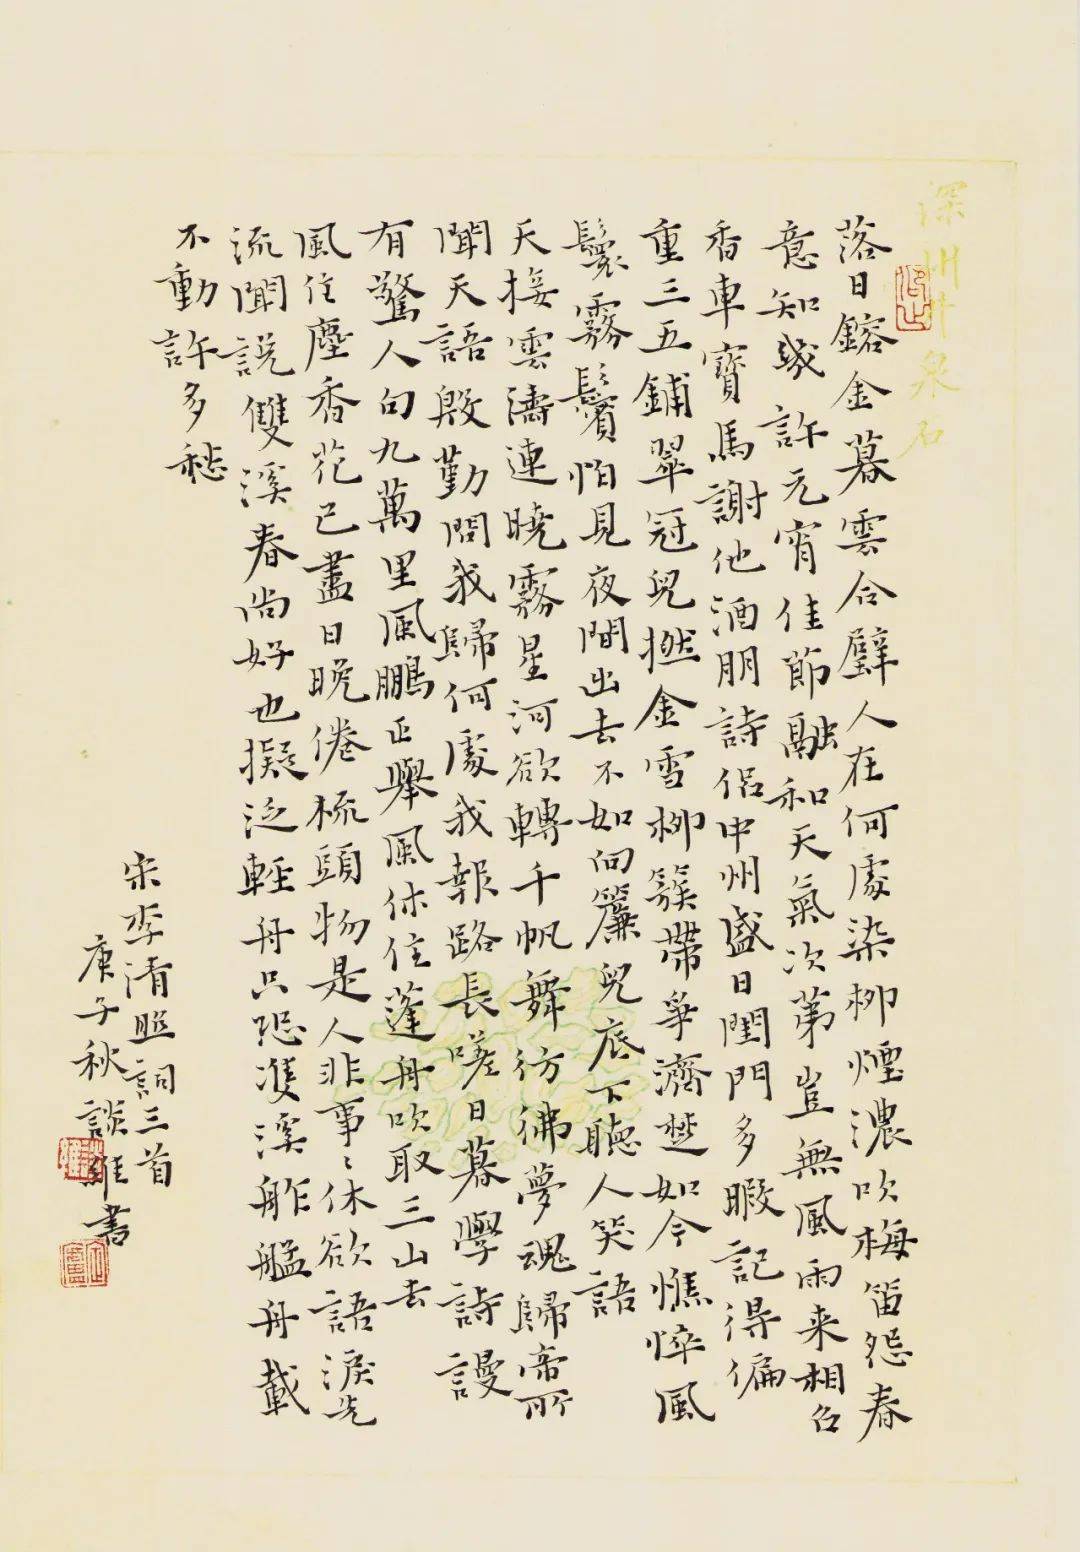 深州井泉石
落日鎔金暮雲合璧人在何處染柳煙濃吹梅笛怨春
意知幾許元宵佳節融和天氣次第豈無風雨来相召
香車寶馬謝他酒朋詩侶中州盛日閨門多暇記得偏
重三五鋪翠冠兒撚金雪柳簇帶爭濟楚如今憔悴風
鬟霧鬢怕見夜間出去不如向簾兒底下聽人笑語
天接雲濤連曉霧星河欲轉千帆舞彷彿夢魂歸帝所
聞天語殷勤問我歸何處我報路長嗟日暮學詩謾
有驚人句九萬里風鵬正舉風休住蓬舟吹取三山去
風住塵香花已盡日晚倦梳頭物是人非事〻休欲語淚先
流聞說雙溪春尚好也擬泛輕舟只恐雙溪舴艋舟載
不動許多愁
宋李清照詞三首
庚子秋談維書